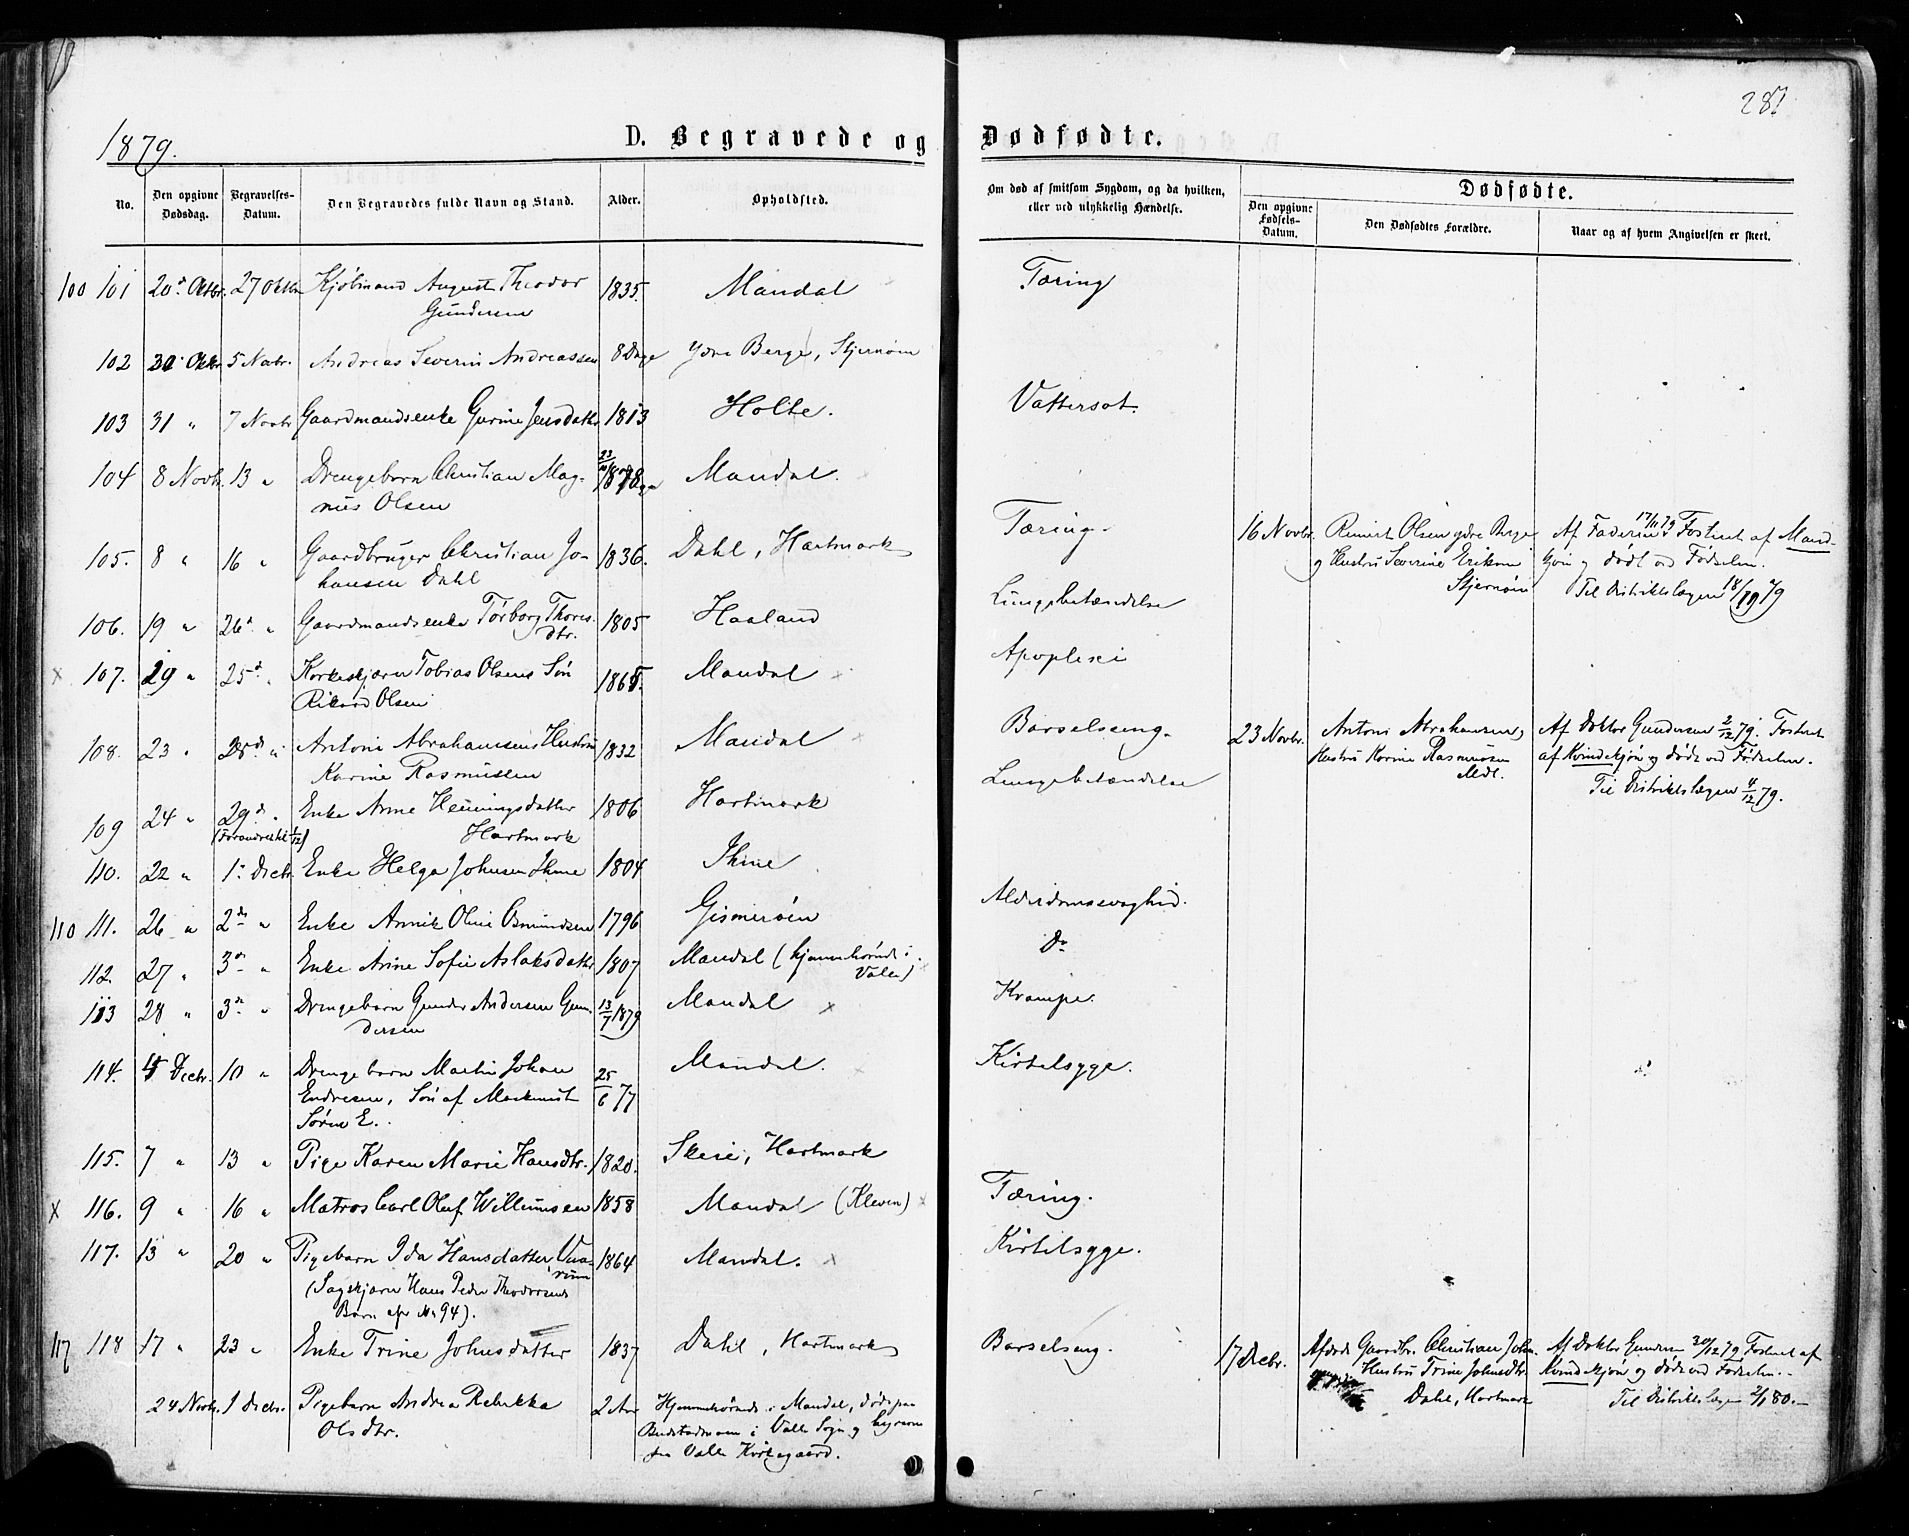 287
1879.
D. Begravede og Dødfødte.
No.
Den opgivne Dødsdag.
Begravelses-Datum.
Den Begravedes fulde Navn og Stand.
Alder.
Opholdsted.
Om død af smitsom Sygdom, og da hvilken, eller ved ulykkelig Hændelse.
Dødfødte.
Den opgivne Fødsels-Datum.
Den Dødfødtes Forældre.
Naar og af hvem Angivelsen er skeet.
100 101 20de Oktbr. 27 Oktbr Kjøbmand August Theodor 1835. Mandal Tæring
Gundersen
102 Oktbr 5 Novbr. Andreas Severin Andreassen 8 Dage Ydre Berge, Stjernøen
103 31 " 7 Novbr Gaardmandsenke Gurine Jensdatter 1813 Holte. Vattersot.
104 8 Novbr. 13 " Drengebarn Christian Mag- Mandal.
nus Olsen
105. 8 " 16 " Gaardbruger Christian Jo- 1836. Dahl, Hartmark Tæring. 16 Novbr. Olsen ydre Berge Af Faderen 17/11 79 Fostret af Mand-
hansen Dahl og Hustru Severine kjøn og dødt ved Fødselen.
Stjernøen Til Distriktslægen 18/11 79
106. 19 " 26de " Gaardmandsenke Torborg Thores 1805 Haaland Lungebetændelse
dtr.
x 107. 29 " 25de " Tobias Olsens Søn 1865. Mandal x Apoplexi
Rikard Olsen
108. 23 " " Antoni Abrahamsens Hustru 1832 Mandal Barselseng. 23 Novbr. Antoni Abrahamsen, Af Doktor Gundersen 2/12 79. Fostret
Karine Rasmussen Hustru Karine Rasmussen af Kvindekjøn og døde ved Fødselen.
Mdl. Til Distriktslægen 4/12 79.
109 24 " 29de " Enke Anne Henningsdatter 1806 Hartmark Lungebetændelse
Hartmark
110. 22 " 1. Decbr. Enke Helga Johnsen Ihme 1804 Ihme
110 111. 26 " 2den " Enke Annik Oline Osmundsen 1796 Gismerøen Alderdomssvaghed.
112. 27 " 3de " Enke Anne Sofie Aslaksdatter 1807 Mandal (hjemmehørende i Do
Valle)
113 28 " 3de " Drengebarn Gunder Andersen Gun- 13/7 1879 Mandal x Krampe.
dersen
114. Decbr. 10 " Drengebarn Martin Johan 25/6 77 Mandal. Kirtelsyge.
Endresen, Søn af
Søren E.
115. 7 " 13 " Pige Karen Marie Hansdtr. 1820. Skeie, Hartmark
x 116. 9 " 16 " Matros Carl Oluf Willumsen 1858 Mandal (Kleven) x Tæring.
117. 13 " 20 " Pigebarn Ida Hansdatter, 1864 Mandal. x Kirtelsyge.
(Sagskjærer Hans Peder Theodorsens
Barn No 94).
117 118 17 " 23 " Enke Trine Johnsdatter 1837 Dahl, Hartmark Barselseng. 17 Decbr. Afdøde Gaardbr. Christian Johan. Af Doktor Gundersen 30/12 79 Fostret af
Hustru Trine Johnsdtr Kvindekjøn og døde ved Fødselen.
Dahl, Hartmark Til Distriktslægen 2/1 80.
24 Novbr. 1 Decbr. Pigebarn Andrea Rebekka 2 Aar Hjemmehørende i Mandal, døde paa
Olsdtr. i Valle Sogn og begraven
paa Valle Kirkegaard.